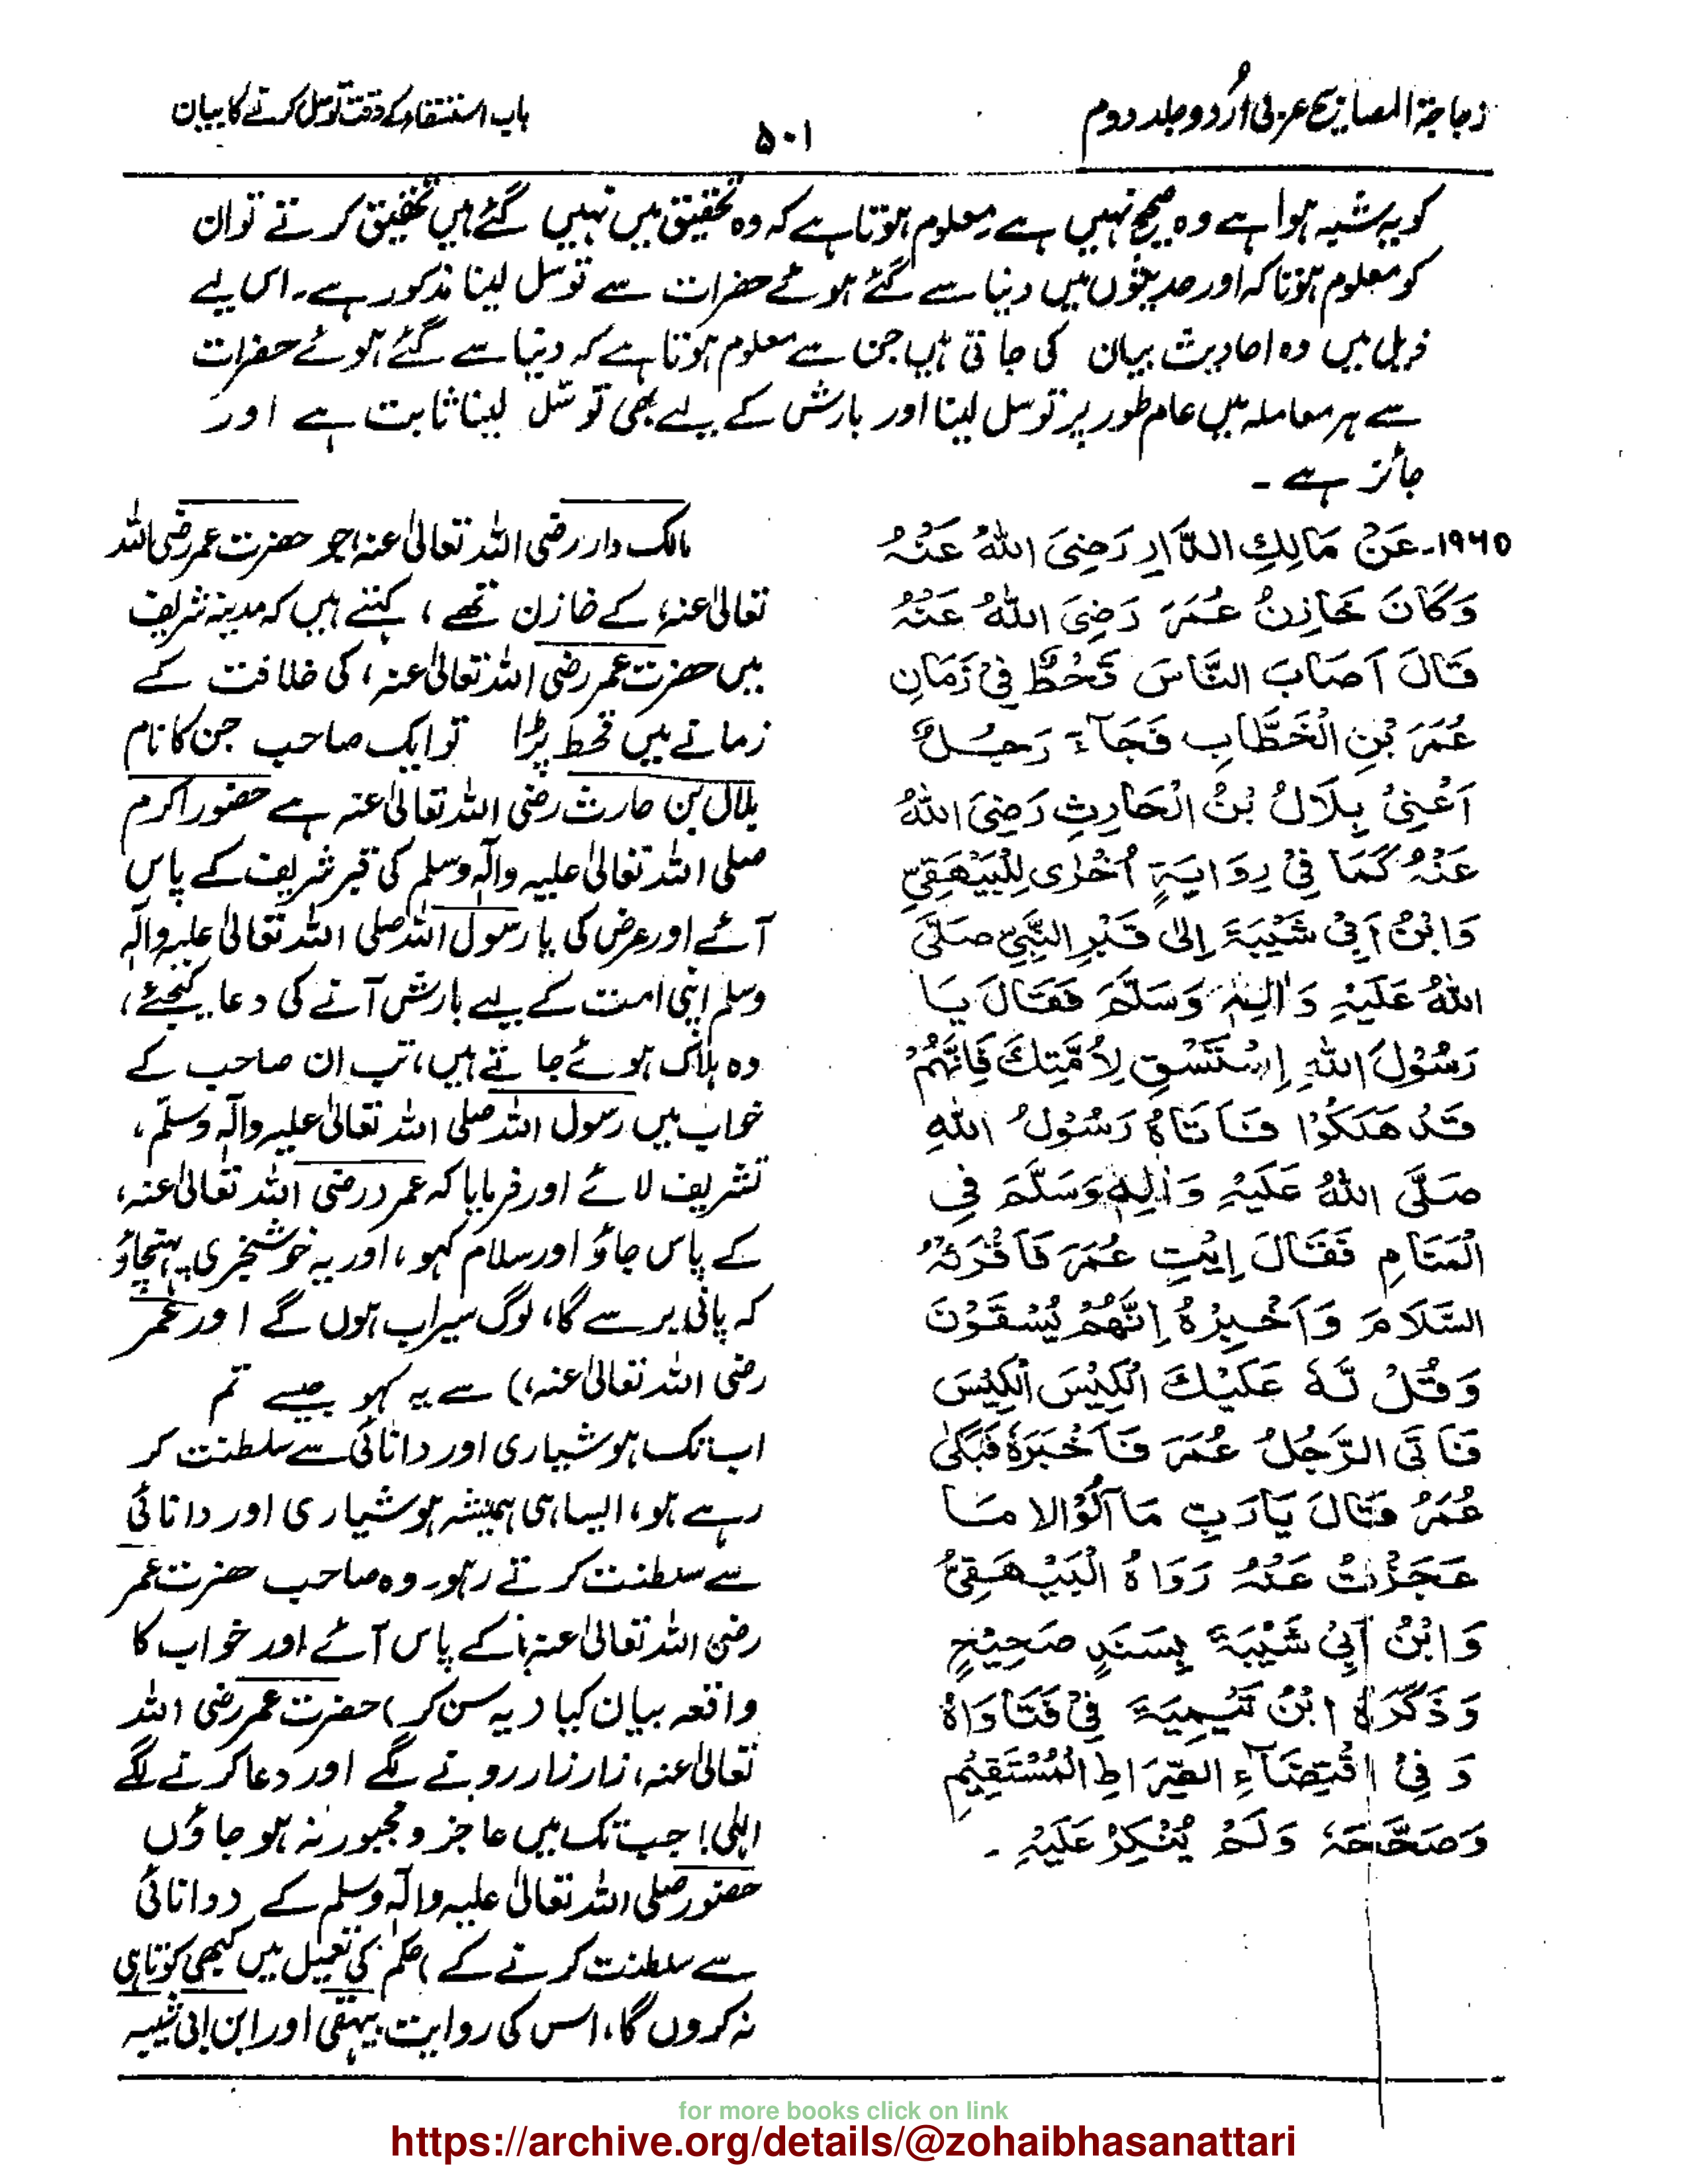 زجاجۃ المصابیح عربی اُردو جلد دوم
۵۰۱
باب استسقاء کے وقت توسل کرنے کا بیان
کو یہ شبہ ہوا ہے وہ صحیح نہیں ہے معلوم ہوتا ہے کہ وہ تحقیق میں نہیں گئے ہیں تحقیق کرتے تو ان
کو معلوم ہوتا کہ اور حدیثوں میں دنیا سے گئے ہوئے حضرات سے توسل لینا مذکور ہے۔ اس لیے
ذیل میں وہ احادیث بیان کی جاتی ہیں جن سے معلوم ہوتا ہے کہ دنیا سے گئے ہوئے حضرات
سے ہر معاملہ میں عام طور پر توسل لینا اور بارش کے لیے بھی توسّل لینا ثابت ہے اور
جائز ہے۔
۱۹۶۵۔ عَنْ مَالِكِ الدَّارِ رَضِيَ اللّٰهُ عَنْهُ
وَكَانَ خَازِنُ عُمَرَ رَضِيَ اللّٰهُ عَنْهُ
قَالَ اَصَابَ النَّاسَ قَحْطٌ فِيْ زَمَانِ
عُمَرَ بْنِ الْخَطَّابِ فَجَآءَ رَجُلٌ
اَعْنِيْ بِلَالُ بْنُ الْحَارِثِ رَضِيَ اللّٰهُ
عَنْهُ كَمَا فِيْ رِوَايَةٍ اُخْرٰى لِلْبَيْهَقِيِّ
وَابْنُ اَبِيْ شَيْبَةَ اِلٰى قَبْرِ النَّبِيِّ صَلَّى
اللّٰهُ عَلَيْهِ وَاٰلِهٖ وَسَلَّمَ فَقَالَ يَا
رَسُوْلَ اللّٰهِ اِسْتَسْقِ لِاُمَّتِكَ فَاِنَّهُمْ
قَدْ هَلَكُوْا فَاَتَاهُ رَسُوْلُ اللّٰهِ
صَلَّى اللّٰهُ عَلَيْهِ وَاٰلِهٖ وَسَلَّمَ فِي
الْمَنَامِ فَقَالَ اِيْتِ عُمَرَ فَاَقْرَئْهُ
السَّلَامَ وَاَخْبِرْهُ اِنَّهُمْ يُسْقَوْنَ
وَقُلْ لَّهٗ عَلَيْكَ الْكَيْسَ الْكَيْسَ
فَاَتَى الرَّجُلُ عُمَرَ فَاَخْبَرَهٗ فَبَكٰى
عُمَرُ فَقَالَ يَا رَبِّ مَآ اٰلُوْا اِلَّا مَا
عَجَزْتُ عَنْهُ رَوَاهُ الْبَيْهَقِيُّ
وَابْنُ اَبِيْ شَيْبَةَ بِسَنَدٍ صَحِيْحٍ
وَذَكَرَهُ ابْنُ تَيْمِيَةَ فِيْ فَتَاوَاهُ
وَفِيْ اِقْتِضَآءِ الصِّرَاطِ الْمُسْتَقِيْمِ
وَصَحَّحَهُ وَلَمْ يُنْكِرْ عَلَيْهِ۔
مالک دار رضی اللہ تعالیٰ عنہ، جو حضرت عمر رضی اللہ
تعالیٰ عنہ، کے خازن تھے، کہتے ہیں کہ مدینہ شریف
میں حضرت عمر رضی اللہ تعالیٰ عنہ، کی خلافت کے
زمانے میں قحط پڑا تو ایک صاحب جن کا نام
بلال بن حارث رضی اللہ تعالیٰ عنہ ہے حضور اکرم
صلی اللہ تعالیٰ علیہ واٰلہٖ وسلم کی قبر شریف کے پاس
آئے اور عرض کی یا رسول اللہ صلی اللہ تعالیٰ علیہ واٰلہٖ
وسلم اپنی امت کے لیے بارش آنے کی دعا کیجئے،
وہ ہلاک ہوئے جاتے ہیں، تب ان صاحب کے
خواب میں رسول اللہ صلی اللہ تعالیٰ علیہ واٰلہٖ وسلّم،
تشریف لائے اور فرمایا کہ عمر (رضی اللہ تعالیٰ عنہ،
کے پاس جاؤ اور سلام کہو، اور یہ خوشخبری پہنچاؤ
کہ پانی برسے گا، لوگ سیراب ہوں گے اور عمر
رضی اللہ تعالیٰ عنہ،) سے یہ کہو جیسے تم
اب تک ہوشیاری اور دانائی سے سلطنت کر
رہے ہو، ایسا ہی ہمیشہ ہوشیاری اور دانائی
سے سلطنت کرتے رہو۔ وہ صاحب حضرت عمر
رضی اللہ تعالیٰ عنہ، کے پاس آئے اور خواب کا
واقعہ بیان کیا (یہ سن کر) حضرت عمر رضی اللہ
تعالیٰ عنہ، زار زار رونے لگے اور دعا کرنے لگے
الٰہی! جب تک میں عاجز و مجبور نہ ہو جاؤں
حضور صلی اللہ تعالیٰ علیہ واٰلہٖ وسلم کے (دانائی
سے سلطنت کرنے کے) حکم کی تعمیل میں کبھی کوتاہی
نہ کروں گا، اس کی روایت بیہقی اور ابن ابی شیبہ
for more books click on link
https://archive.org/details/@zohaibhasanattari